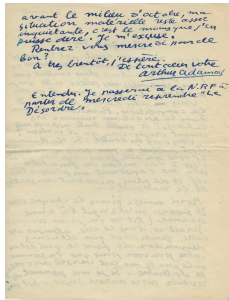 avant le milieu d'octobre, ma
situation matérielle reste assez
inquiétante, c'est le moins que j'en
puisse dire. Je m'excuse.
Rentrez vous mercredi pour de
bon?
A très bientôt, j'espère.
De tout cœur votre
Arthur Adamov
Entendu. Je passerai à la N.R.F à
partir de mercredi reprendre "Le
Désordre".